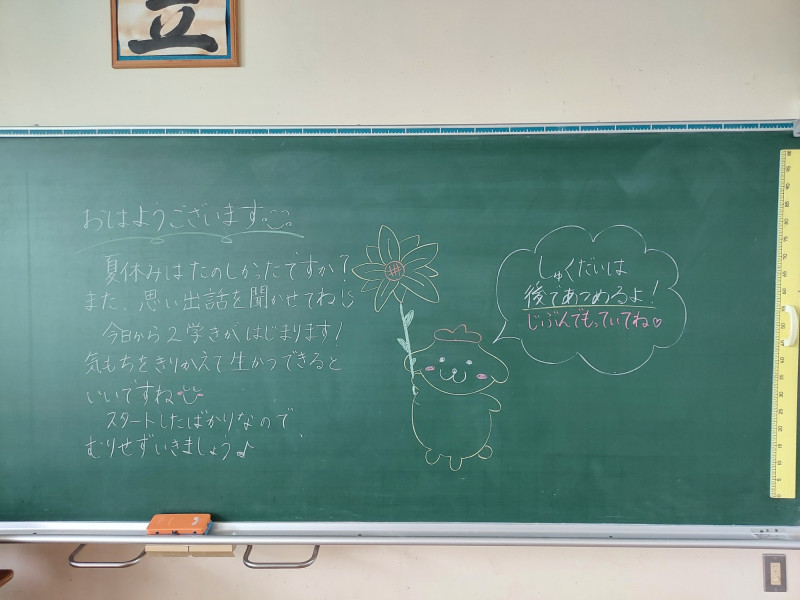 立
おはようございます
夏休みはたのしかったですか？
また、思い出話を聞かせてね
今日から2学きがはじまります！
気もちをきりかえて生かつできると
いいですね
スタートしたばかりなので、
むりせずいきましょう♪
しゅくだいは
後であつめるよ！
じぶんでもっていてね♡